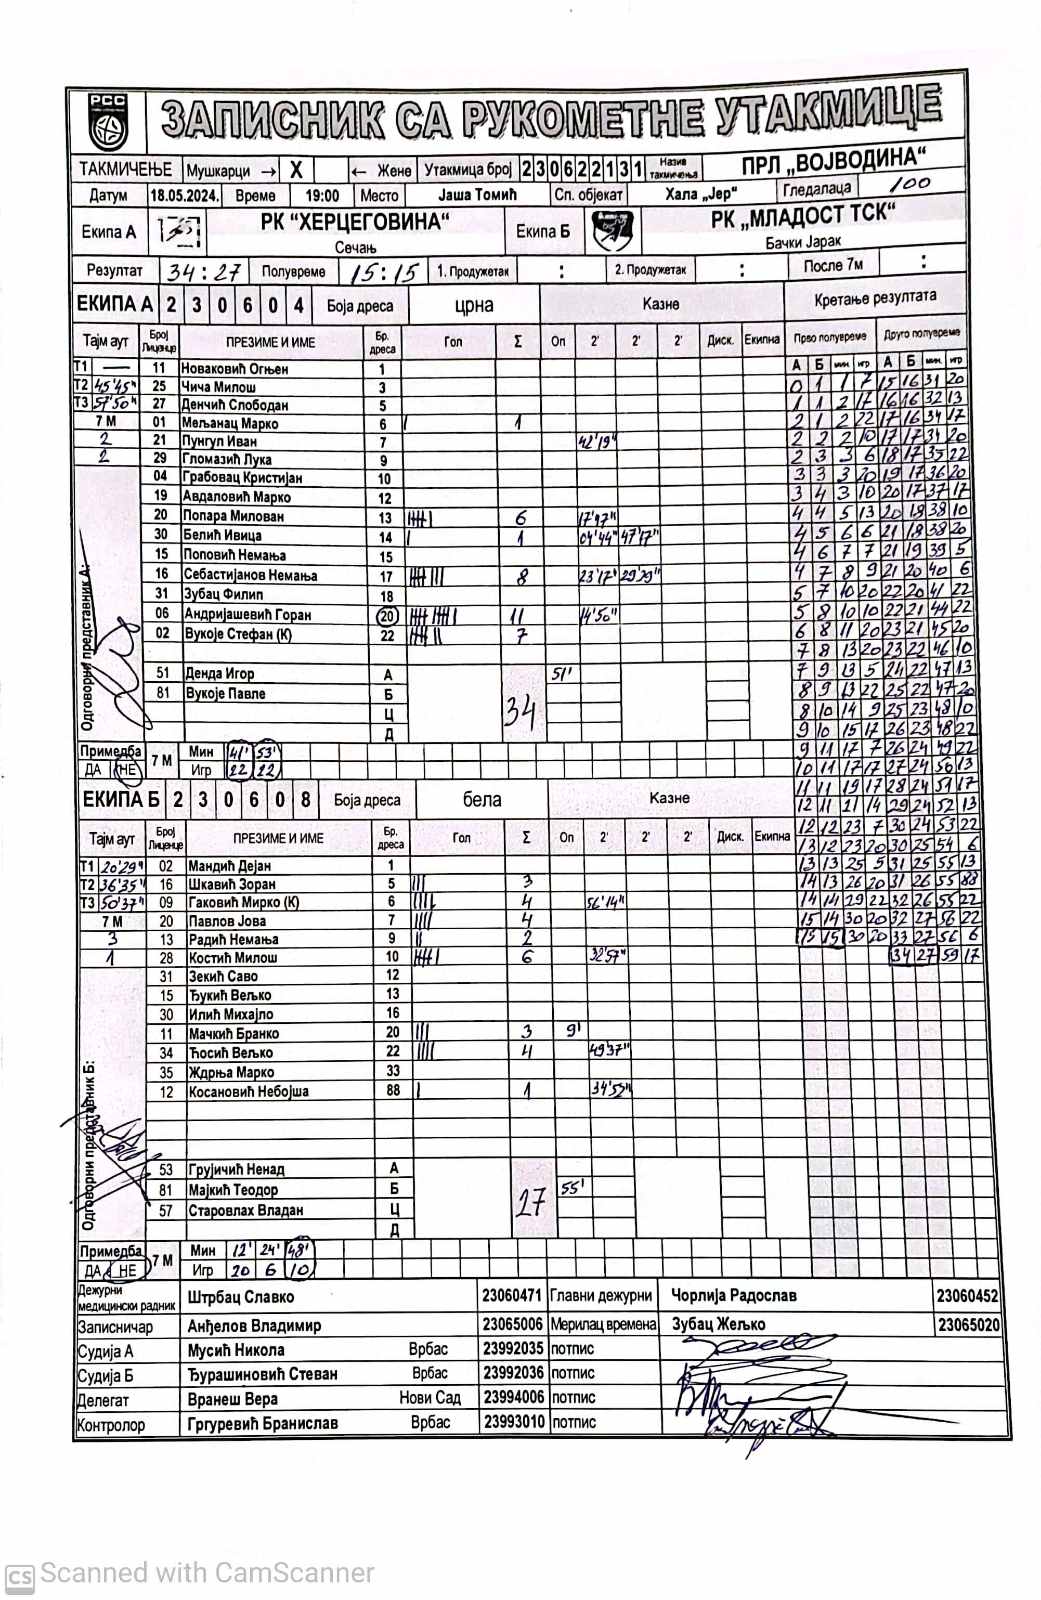 РСС
ЗАПИСНИК СА РУКОМЕТНЕ УТАКМИЦЕ
ТАКМИЧЕЊЕ Мушкарци → X ← Жене Утакмица број 230622131 Назив такмичења ПРЛ „ВОЈВОДИНА“
Датум 18.05.2024. Време 19:00 Место Јаша Томић Сп. објекат Хала „Јер“ Гледалаца 100
Екипа А РК “ХЕРЦЕГОВИНА“ Сечањ Екипа Б РК „МЛАДОСТ ТСК“ Бачки Јарак
Резултат 34:27 Полувреме 15:15 1. Продужетак : 2. Продужетак : После 7м :
ЕКИПА А 2 3 0 6 0 4 Боја дреса црна Казне Кретање резултата
Тајм аут Број Лиценце ПРЕЗИМЕ И ИМЕ Бр. дреса Гол Σ Оп 2' 2' 2' Диск. Екипна Прво полувреме Друго полувреме
А Б мин. игр А Б мин. игр
Т1 — 11 Новаковић Огњен 1 0 1 1 7 15 16 31 20
Т2 45'45" 25 Чича Милош 3 1 1 2 17 16 16 32 13
Т3 57'50" 27 Денчић Слободан 5 2 1 2 22 17 16 34 17
7 М 01 Мељанац Марко 6 1 2 2 2 10 17 17 34 20
2 21 Пунгул Иван 7 42'19" 2 3 3 6 18 17 35 22
2 29 Гломазић Лука 9 3 3 3 20 19 17 36 20
04 Грабовац Кристијан 10 3 4 3 10 20 17 37 17
19 Авдаловић Марко 12 4 4 5 13 20 18 38 10
20 Попара Милован 13 6 17'47" 4 5 6 6 21 18 38 20
30 Белић Ивица 14 1 04'44" 47'17" 4 6 7 7 21 19 39 5
15 Поповић Немања 15 4 7 8 9 21 20 40 6
16 Себастијанов Немања 17 8 23'17" 29'39" 5 7 10 20 22 20 41 22
31 Зубац Филип 18 5 8 10 10 22 21 44 22
06 Андријашевић Горан 20 11 14'50" 6 8 11 20 23 21 45 20
02 Вукоје Стефан (К) 22 7 7 8 13 20 23 22 46 10
7 9 13 5 24 22 47 13
51 Денда Игор А 51' 8 9 13 22 25 22 47 20
81 Вукоје Павле Б 34 8 10 14 9 25 23 48 10
Ц 9 10 15 17 26 23 48 22
Д 9 11 17 7 26 24 49 22
Одговорни представник А:
Примедба ДА НЕ 7 М Мин 41' 53' 10 11 17 17 27 24 50 13
Игр 22 22 11 11 19 17 28 24 51 17
ЕКИПА Б 2 3 0 6 0 8 Боја дреса бела Казне 12 11 21 14 29 24 52 13
12 12 23 7 30 24 53 22
Тајм аут Број Лиценце ПРЕЗИМЕ И ИМЕ Бр. дреса Гол Σ Оп 2' 2' 2' Диск. Екипна 13 12 23 20 30 25 54 6
Т1 20'29" 02 Мандић Дејан 1 13 13 25 5 31 25 55 13
Т2 36'35" 16 Шкавић Зоран 5 3 14 13 26 20 31 26 55 88
Т3 50'37" 09 Гаковић Мирко (К) 6 4 56'14" 14 14 29 22 32 26 55 22
7 М 20 Павлов Јова 7 4 15 14 30 20 32 27 56 22
3 13 Радић Немања 9 2 15 15 30 20 33 27 56 6
1 28 Костић Милош 10 6 32'57" 34 27 59 17
31 Зекић Саво 12
15 Ђукић Вељко 13
30 Илић Михајло 16
11 Мачкић Бранко 20 3 9'
34 Ћосић Вељко 22 4 49'37"
35 Ждрња Марко 33
12 Косановић Небојша 88 1 34'53"
53 Грујичић Ненад А
81 Мајкић Теодор Б 27 55'
57 Старовлах Владан Ц
Д
Одговорни представник Б:
Примедба ДА НЕ 7 М Мин 12' 24' 48'
Игр 20 6 10
Дежурни медицински радник Штрбац Славко 23060471 Главни дежурни Чорлија Радослав 23060452
Записничар Анђелов Владимир 23065006 Мерилац времена Зубац Жељко 23065020
Судија А Мусић Никола Врбас 23992035 потпис
Судија Б Ђурашиновић Стеван Врбас 23992036 потпис
Делегат Вранеш Вера Нови Сад 23994006 потпис
Контролор Гргуревић Бранислав Врбас 23993010 потпис
CS Scanned with CamScanner